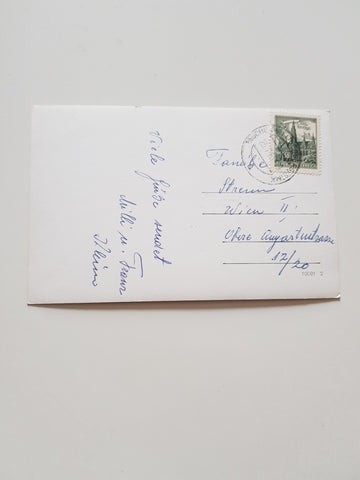 Viele Grüße sendet
Milli u. Franz
Klein
Familie
Wien II
Obere Augartenstrasse
12/20
10091 2